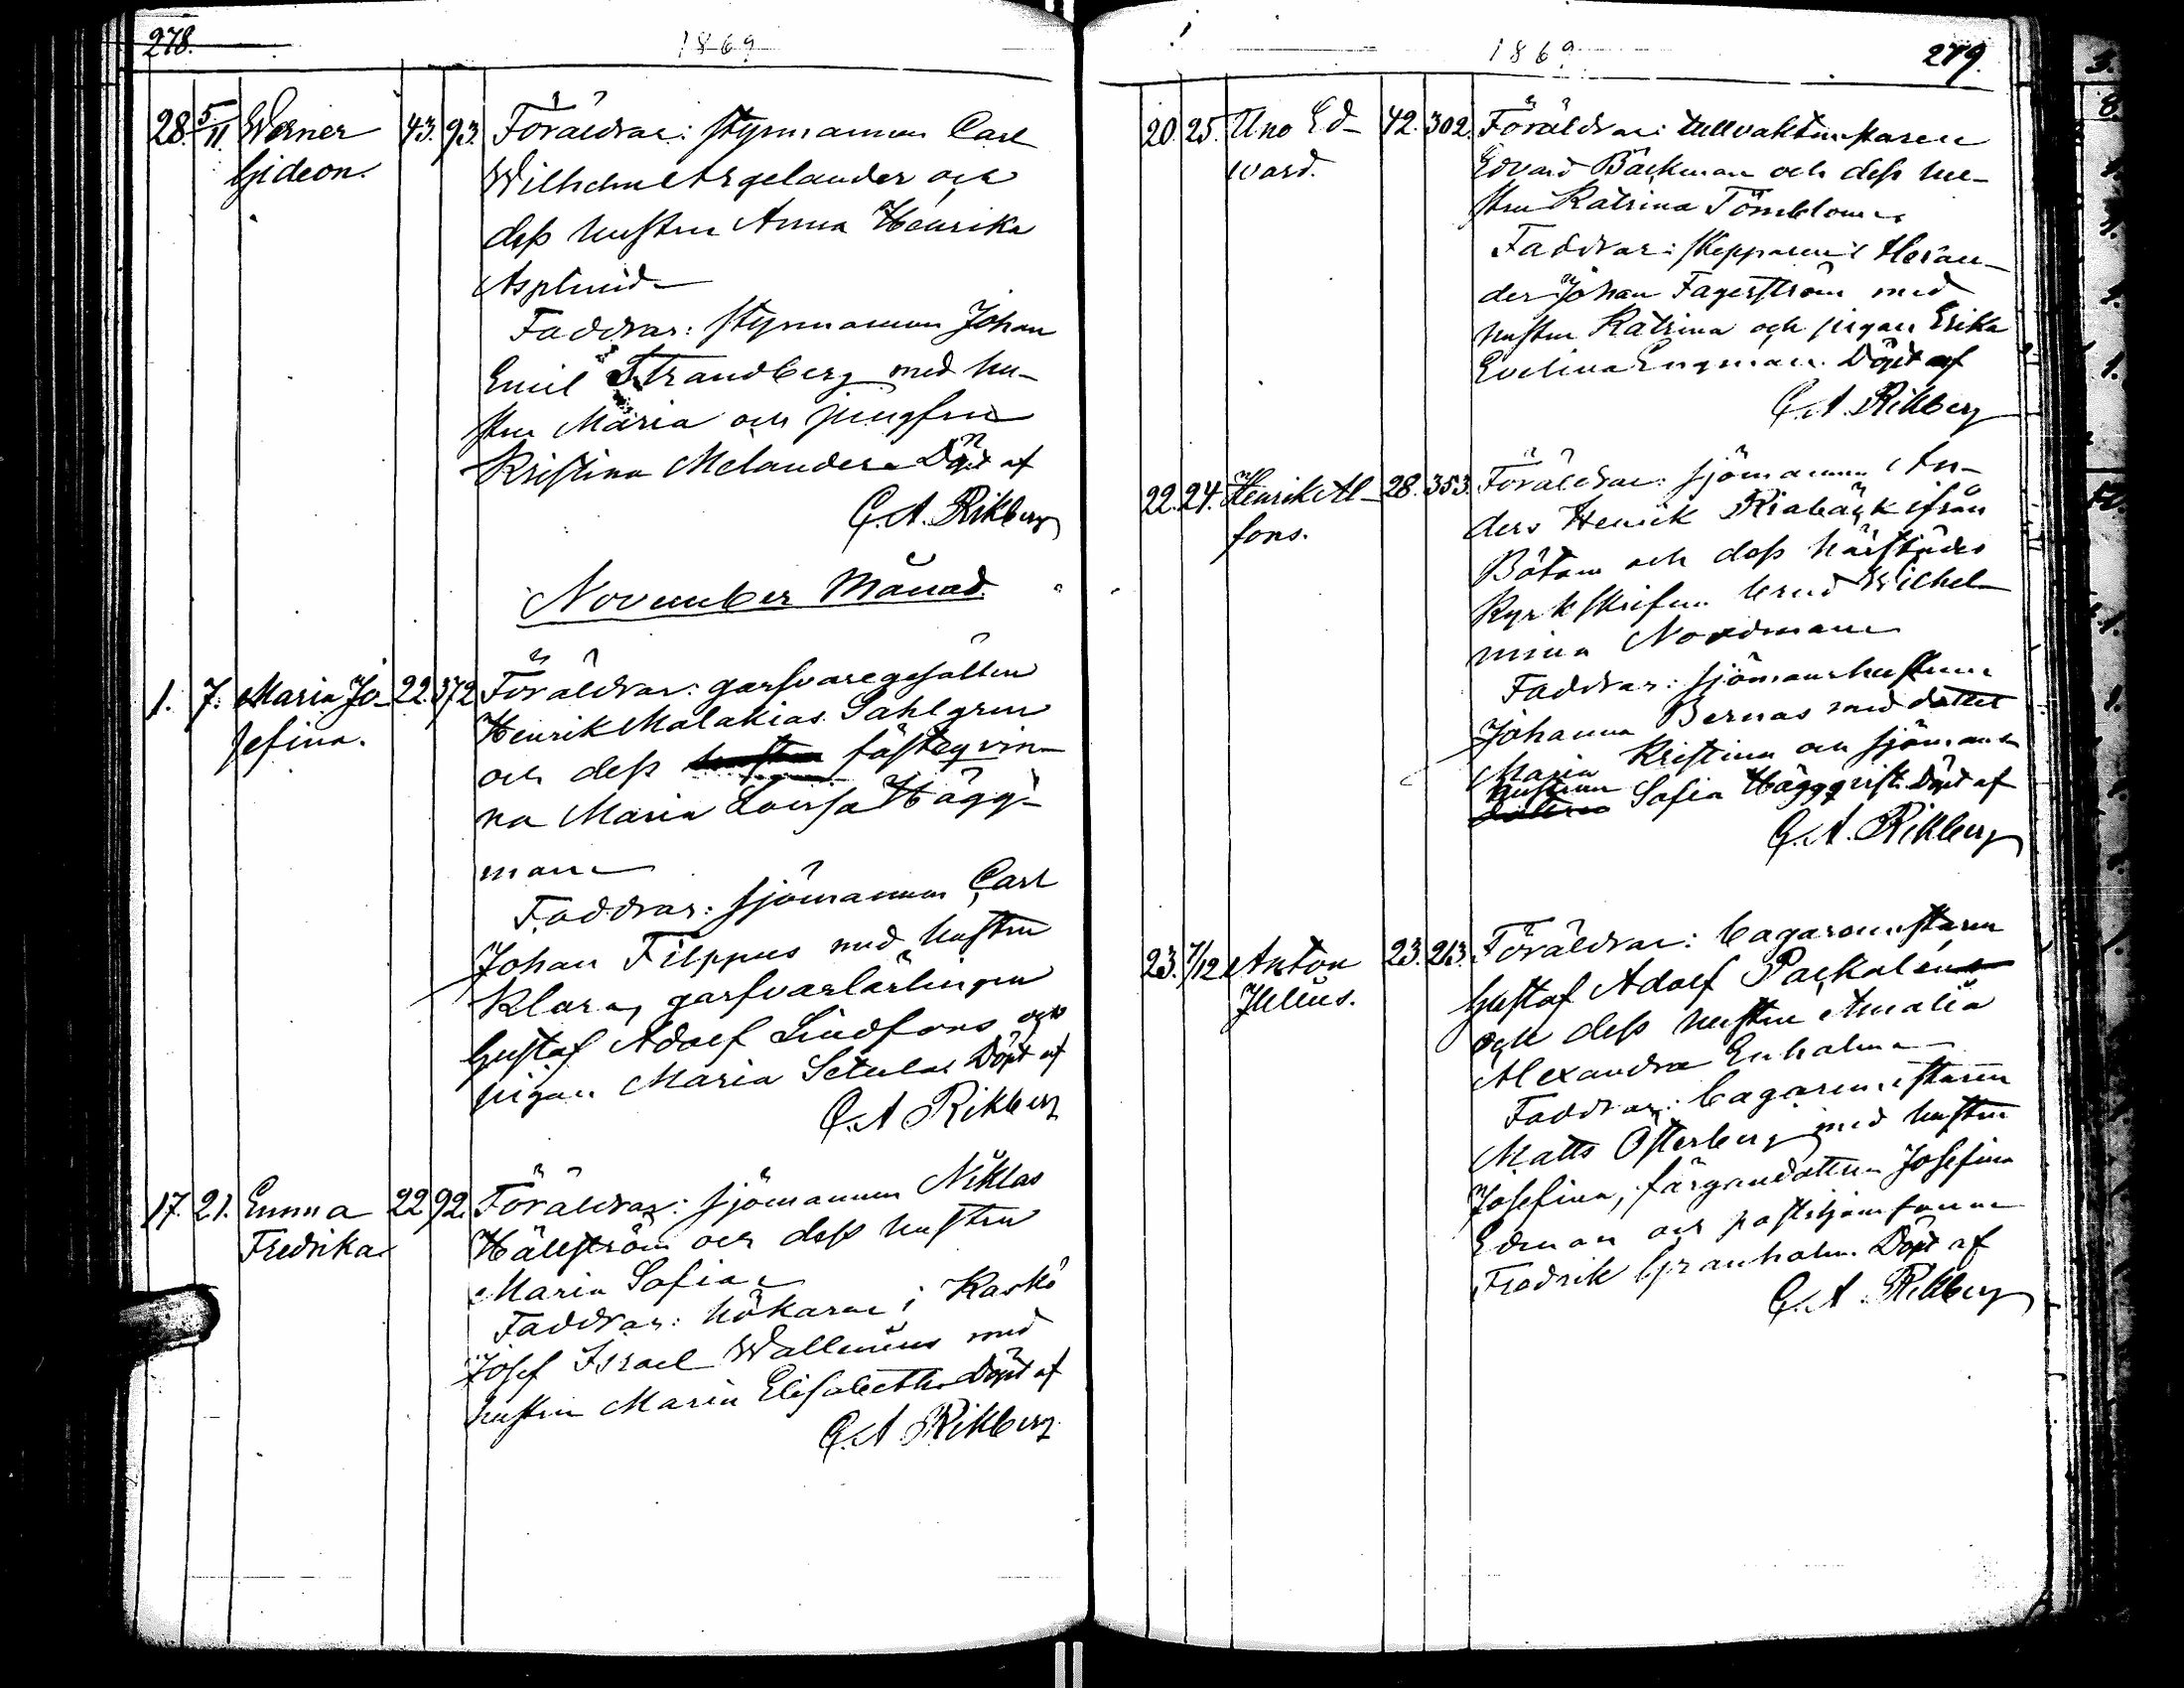 278.
1869
28. 5/11. Werner 43. 93. Föräldrar: styrmannen Carl
Gideon. Wilhelm Argelander och
dess hustru Anna Henrika
Asplund
Faddrar: styrmannen Johan
Emil Strandberg med hu-
stru Maria och jungfru
Kristina Melander. Döpt af
C. A. Rikberg
November Månad.
1. 7. Maria Jo- 22. 372 Föräldrar: garfvaregesällen
sefina. Henrik Malakias Sahlgren
och dess hustru fästeqvin-
na Maria Lovisa Hägg-
man
Faddrar: sjömannen Carl
Johan Filppus med hustru
Klara, garfvarlärlingen
Gustaf Adolf Lindfors och
pigan Maria Setula. Döpt af
C. A Rikberg
17. 21. Emma 22 92. Föräldrar: sjömannen Niklas
Fredrika Hällström och dess hustru
Maria Sofia
Faddrar: hökaren i Kaskö
Josef Israel Wallenius med
hustru Maria Elisabeth. Döpt af
C. A Rikberg
1869
279.
20. 25. Uno Ed- 42. 302. Föräldrar: tullvaktmästaren
ward. Edvard Bäckman och dess hu-
stru Katrina Törnblom
Faddrar: skepparen
Johan Fagerström med
hustru Katrina och pigan Erika
Evelina Engman. Döpt af
C. A. Rikberg
22. 24. Henrik Al- 28. 353. Föräldrar: sjömannen An-
fons. ders Henrik Riabäck ifrån
Bötom och dess härstädes
Kyrkskrifna brud Wilhel-
mina Nordman
Faddrar: sjömanshustrun
Johanna Bernas med dotter
Maria Kristina och sjömans
hustrun
Sofia Häggqvist. Döpt af
C. A. Rikberg
23. 7/12 Anton 23. 213. Föräldrar: bagaremästaren
Julius. Gustaf Adolf Packalén
och dess hustru Amalia
Alexandra Enholm
Faddrar: bagaremästaren
Matts Österberg med hustru
Josefina, färgaredottren Josefina
Edman och postiljonsfannen
Fredrik Granholm. Döpt af
C. A. Rikberg